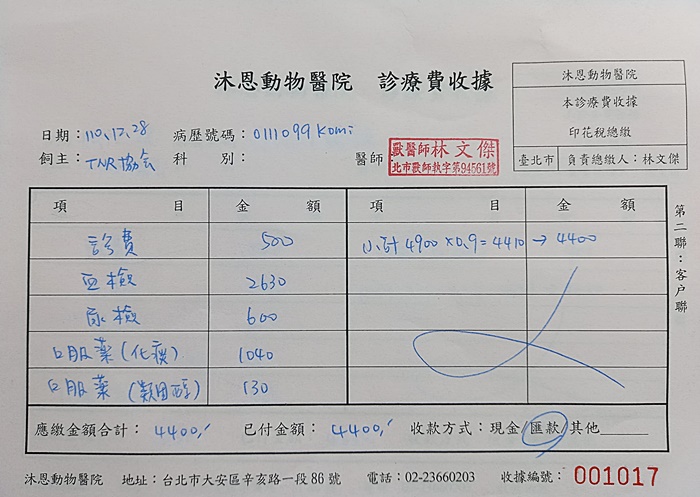 沐恩動物醫院 診療費收據
沐恩動物醫院
本診療費收據
印花稅總繳
臺北市 負責總繳人：林文傑
日期：110.12.28 病歷號碼：0111099 Komi
飼主：TNR協会 科別： 醫師：
獸醫師林文傑
北市獸師執字第94561號
項目 金額 項目 金額
診費 500 小計4900×0.9=4410→4400
血檢 2630
尿檢 600
口服薬(化痰) 1040
口服薬(類固醇) 130
應繳金額合計：4400,/ 已付金額：4400,/ 收款方式：現金/匯款/其他______
第二聯：客户聯
沐恩動物醫院 地址：台北市大安區辛亥路一段86號 電話：02-23660203 收據編號：001017